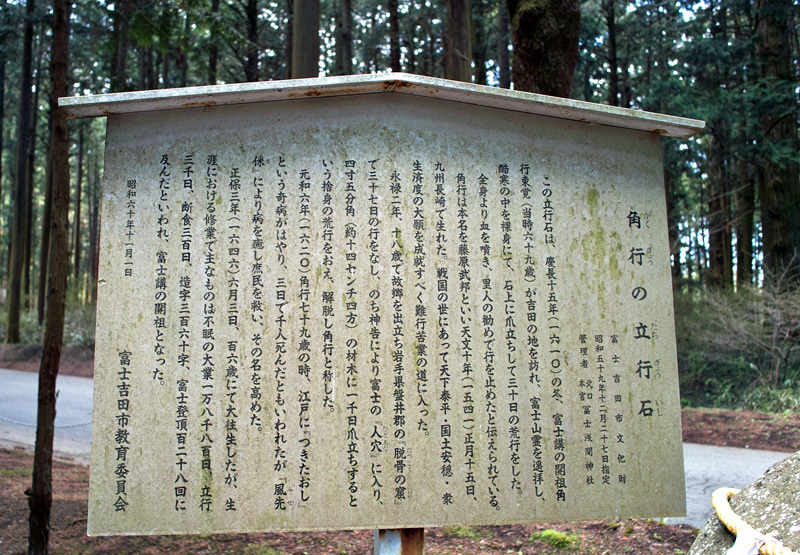 角行の立行石
かくぎょう たちぎょう いし
富士吉田市文化財
昭和五十九年十二月二十七日指定
管理者 北口本宮冨士浅間神社
この立行石は、慶長十五年（一六一〇）の冬、富士講の開祖角
行東覚（当時六十九歳）が吉田の地を訪れ、富士山霊を遥拝し、
酷寒の中を裸身にて、石上に爪立ちして三十日の荒行をした。
全身より血を噴き、里人の勧めで行を止めたと伝えられている。
角行は本名を藤原武邦といい天文十年（一五四一）正月十五日、
九州長崎で生れた。戦国の世にあって天下泰平・国土安穏・衆
生済度の大願を成就すべく難行苦業の道に入った。
永禄二年、十八歳で故郷を出立ち岩手県盤井郡の『脱骨の窟』
で三十七日の行をなし、のち神告により富士の『人穴』に入り、
四寸五分角（約十四センチ四方）の材木に一千日爪立ちすると
いう捨身の荒行をおえ、解脱し角行と称した。
元和六年（一六二〇）角行七十九歳の時、江戸に『つきたおし』
という奇病がはやり、三日で千人死んだともいわれたが『風先
侎』により病を癒し庶民を救い、その名を高めた。
正保三年（一六四六）六月三日、百六歳にて大往生したが、生
涯における修業で主なものは不眠の大業一万八千八百日、立行
三千日、断食三百日、造字三百六十字、富士登頂百二十八回に
及んだといわれ、富士講の開祖となった。
昭和六十年十一月一日
富士吉田市教育委員会